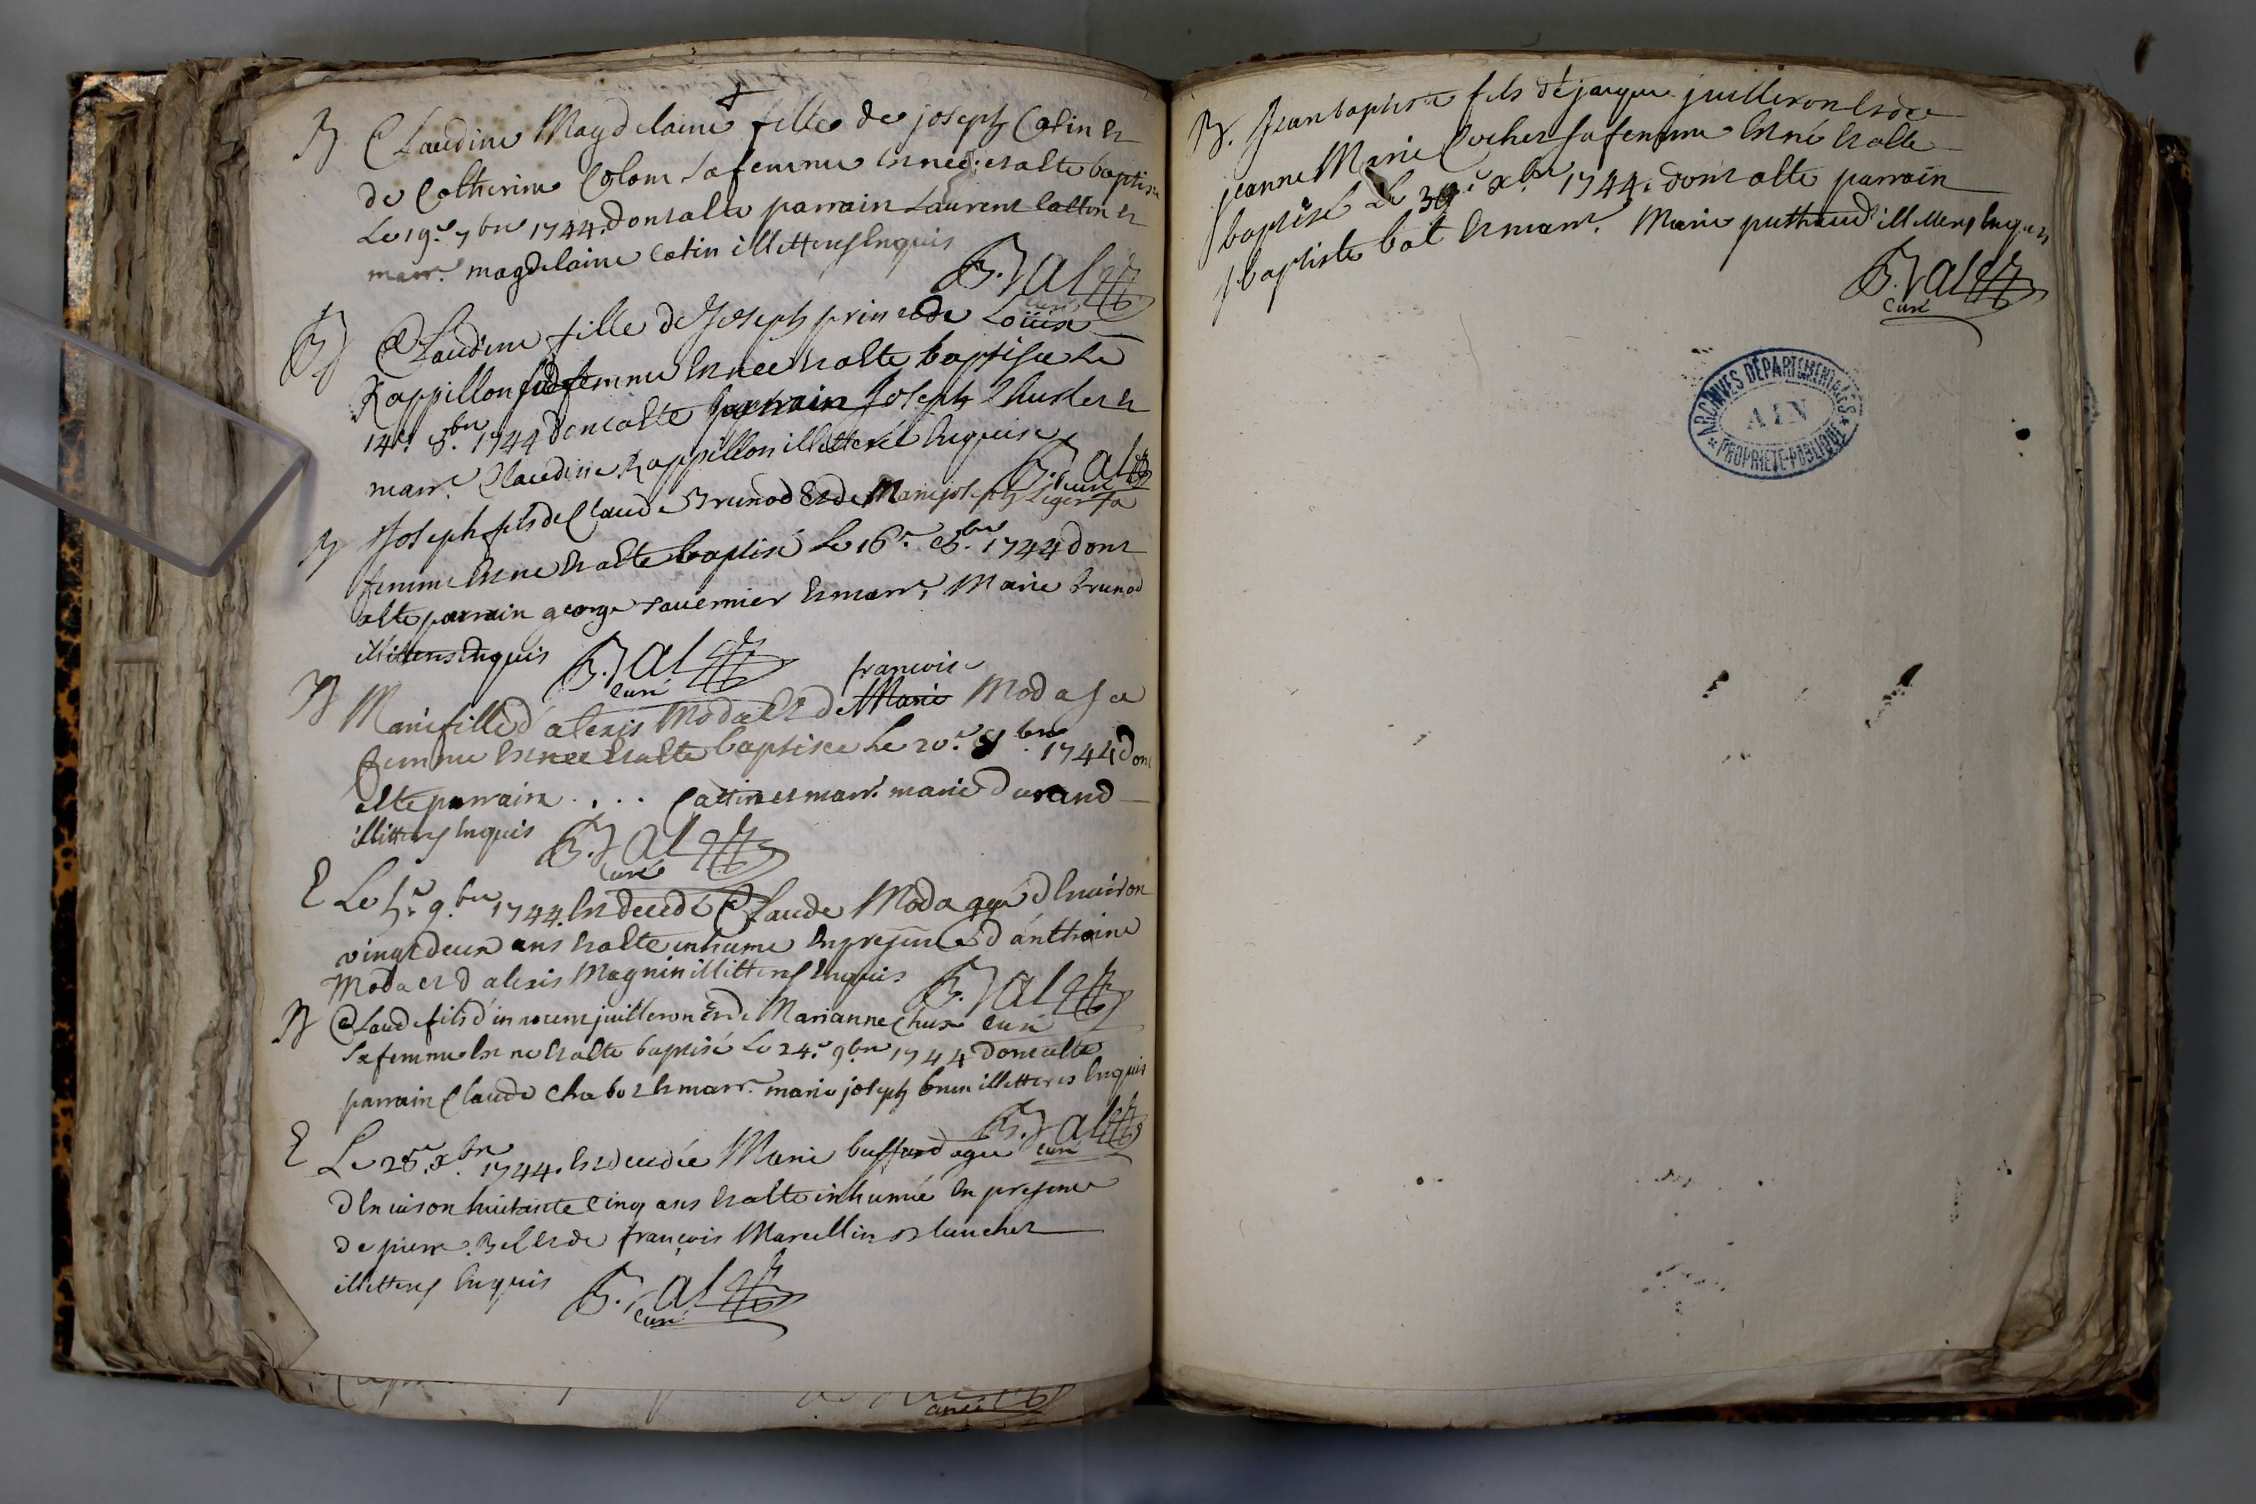 B Claudine Magdelaine fille de joseph Catin et
de Catherine Colom sa femme est née et a été baptisée
le 19.e 7bre 1744. dont a été parrain Laurent Cattin et
marr.e magdelaine catin illetterés enquis
B. Jal
curé
B Claudine fille de Joseph prin et de Loüise
Rappillon sa femme est née et a été baptisée le
14.e 8.bre 1744 dont a été parrain Joseph et
marr.e Claudine Rappillon illetterés enquis
B. Jal
curé
B Joseph fils de Claude Brunod et de Marie joseph Leger sa
femme est né et a été baptisé le 16.e 8.bre 1744 dont
a été parrain george tavernier et marr.e Marie Brunod
illetterés enquis B. Jal
curé
françoise
B Marie fille d'alexis Moda et de Marie Moda sa
femme est née et a été baptisée le 20.e 8.bre 1744 dont
a été parrain . . . Cattin et marr.e marie durand
illetterés enquis B. Jal
curé
E Le 9.bre 1744. est decedé Claude Moda agé d'environ
vingt deux ans et a été inhumé en presence d'anthoine
Moda et d'alexis Magnin illetterés enquis B. Jal
curé
B Claude fils d'innocent juilleron et de Marianne Chux
sa femme est né et a été baptisé le 24.e 9.bre 1744 dont a été
parrain Claude Chabot et marr.e marie joseph brun illetterés enquis
B. Jal
curé
E Le 28.e xbre 1744. est decedée Marie buffard agée
d'environ huitante cinq ans et a été inhumée en presence
de pierre Bel et de françois Marcellin Blanchet
illetterés enquis B. Jal
curé
B. Jean baptiste fils de jaque juilleron et de
jeanne Marie Cochet sa femme est né et a été
baptisé le 30.e xbre 1744. dont a été parrain
j baptiste bat et marr.e Marie puthaud illetterés enquis
B. Jal
curé
ARCHIVES DÉPARTEMENTALES
AIN
* PROPRIÉTÉ PUBLIQUE *